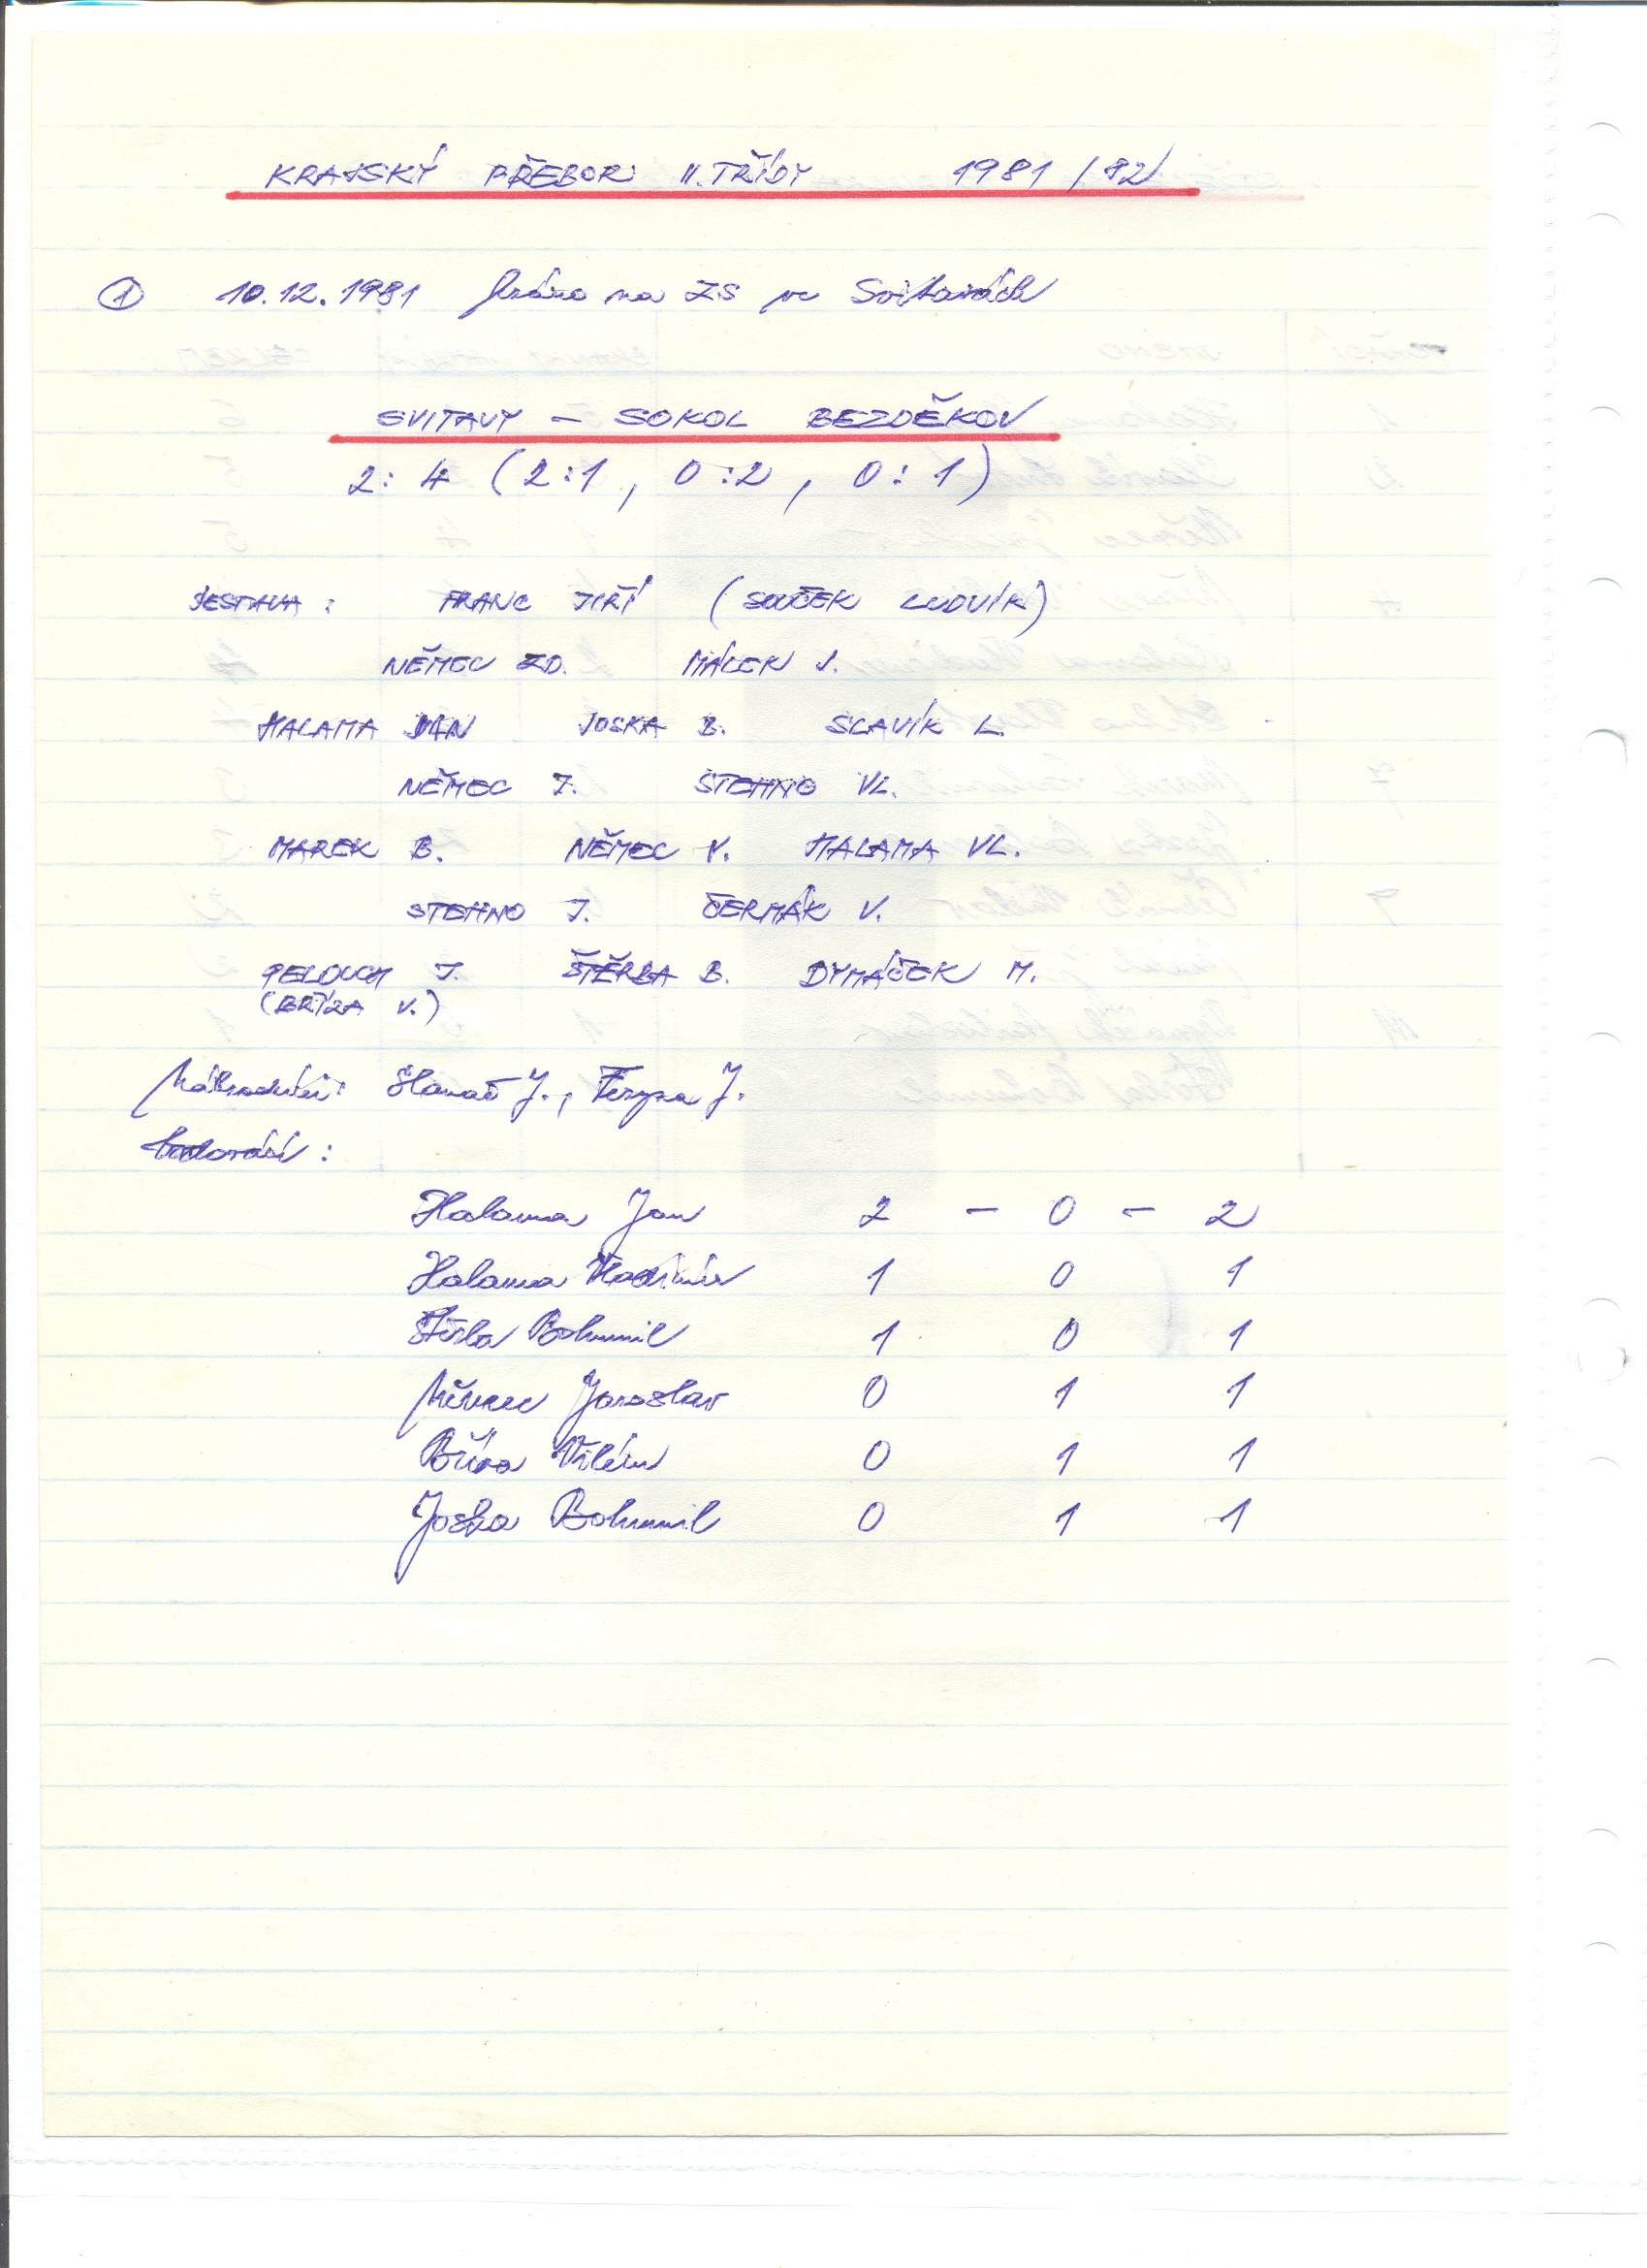 KRAJSKÝ PŘEBOR II. TŘÍDY 1981/82
① 10.12.1981 hráno na ZS ve Svitavách
SVITAVY – SOKOL BEZDĚKOV
2:4 (2:1, 0:2, 0:1)
SESTAVA: FRANC JIŘÍ (SOUČEK LUDVÍK)
NĚMEC ZD. MÁLEK J.
HALAMA JAN JOSKA B. SLAVÍK L.
NĚMEC J. STEHNO VL.
MAREK B. NĚMEC V. HALAMA VL.
STEHNO J. ČERMÁK V.
PELOUCH J. ŠTĚRBA B. DYMÁČEK M.
(BŘÍZA V.)
Náhradníci: J., J.
bodování:
Halama Jan 2 – 0 – 2
Halama Vladimír 1 0 1
Štěrba Bohumil 1 0 1
Němec Jaroslav 0 1 1
Bříza Vilém 0 1 1
Joska Bohumil 0 1 1